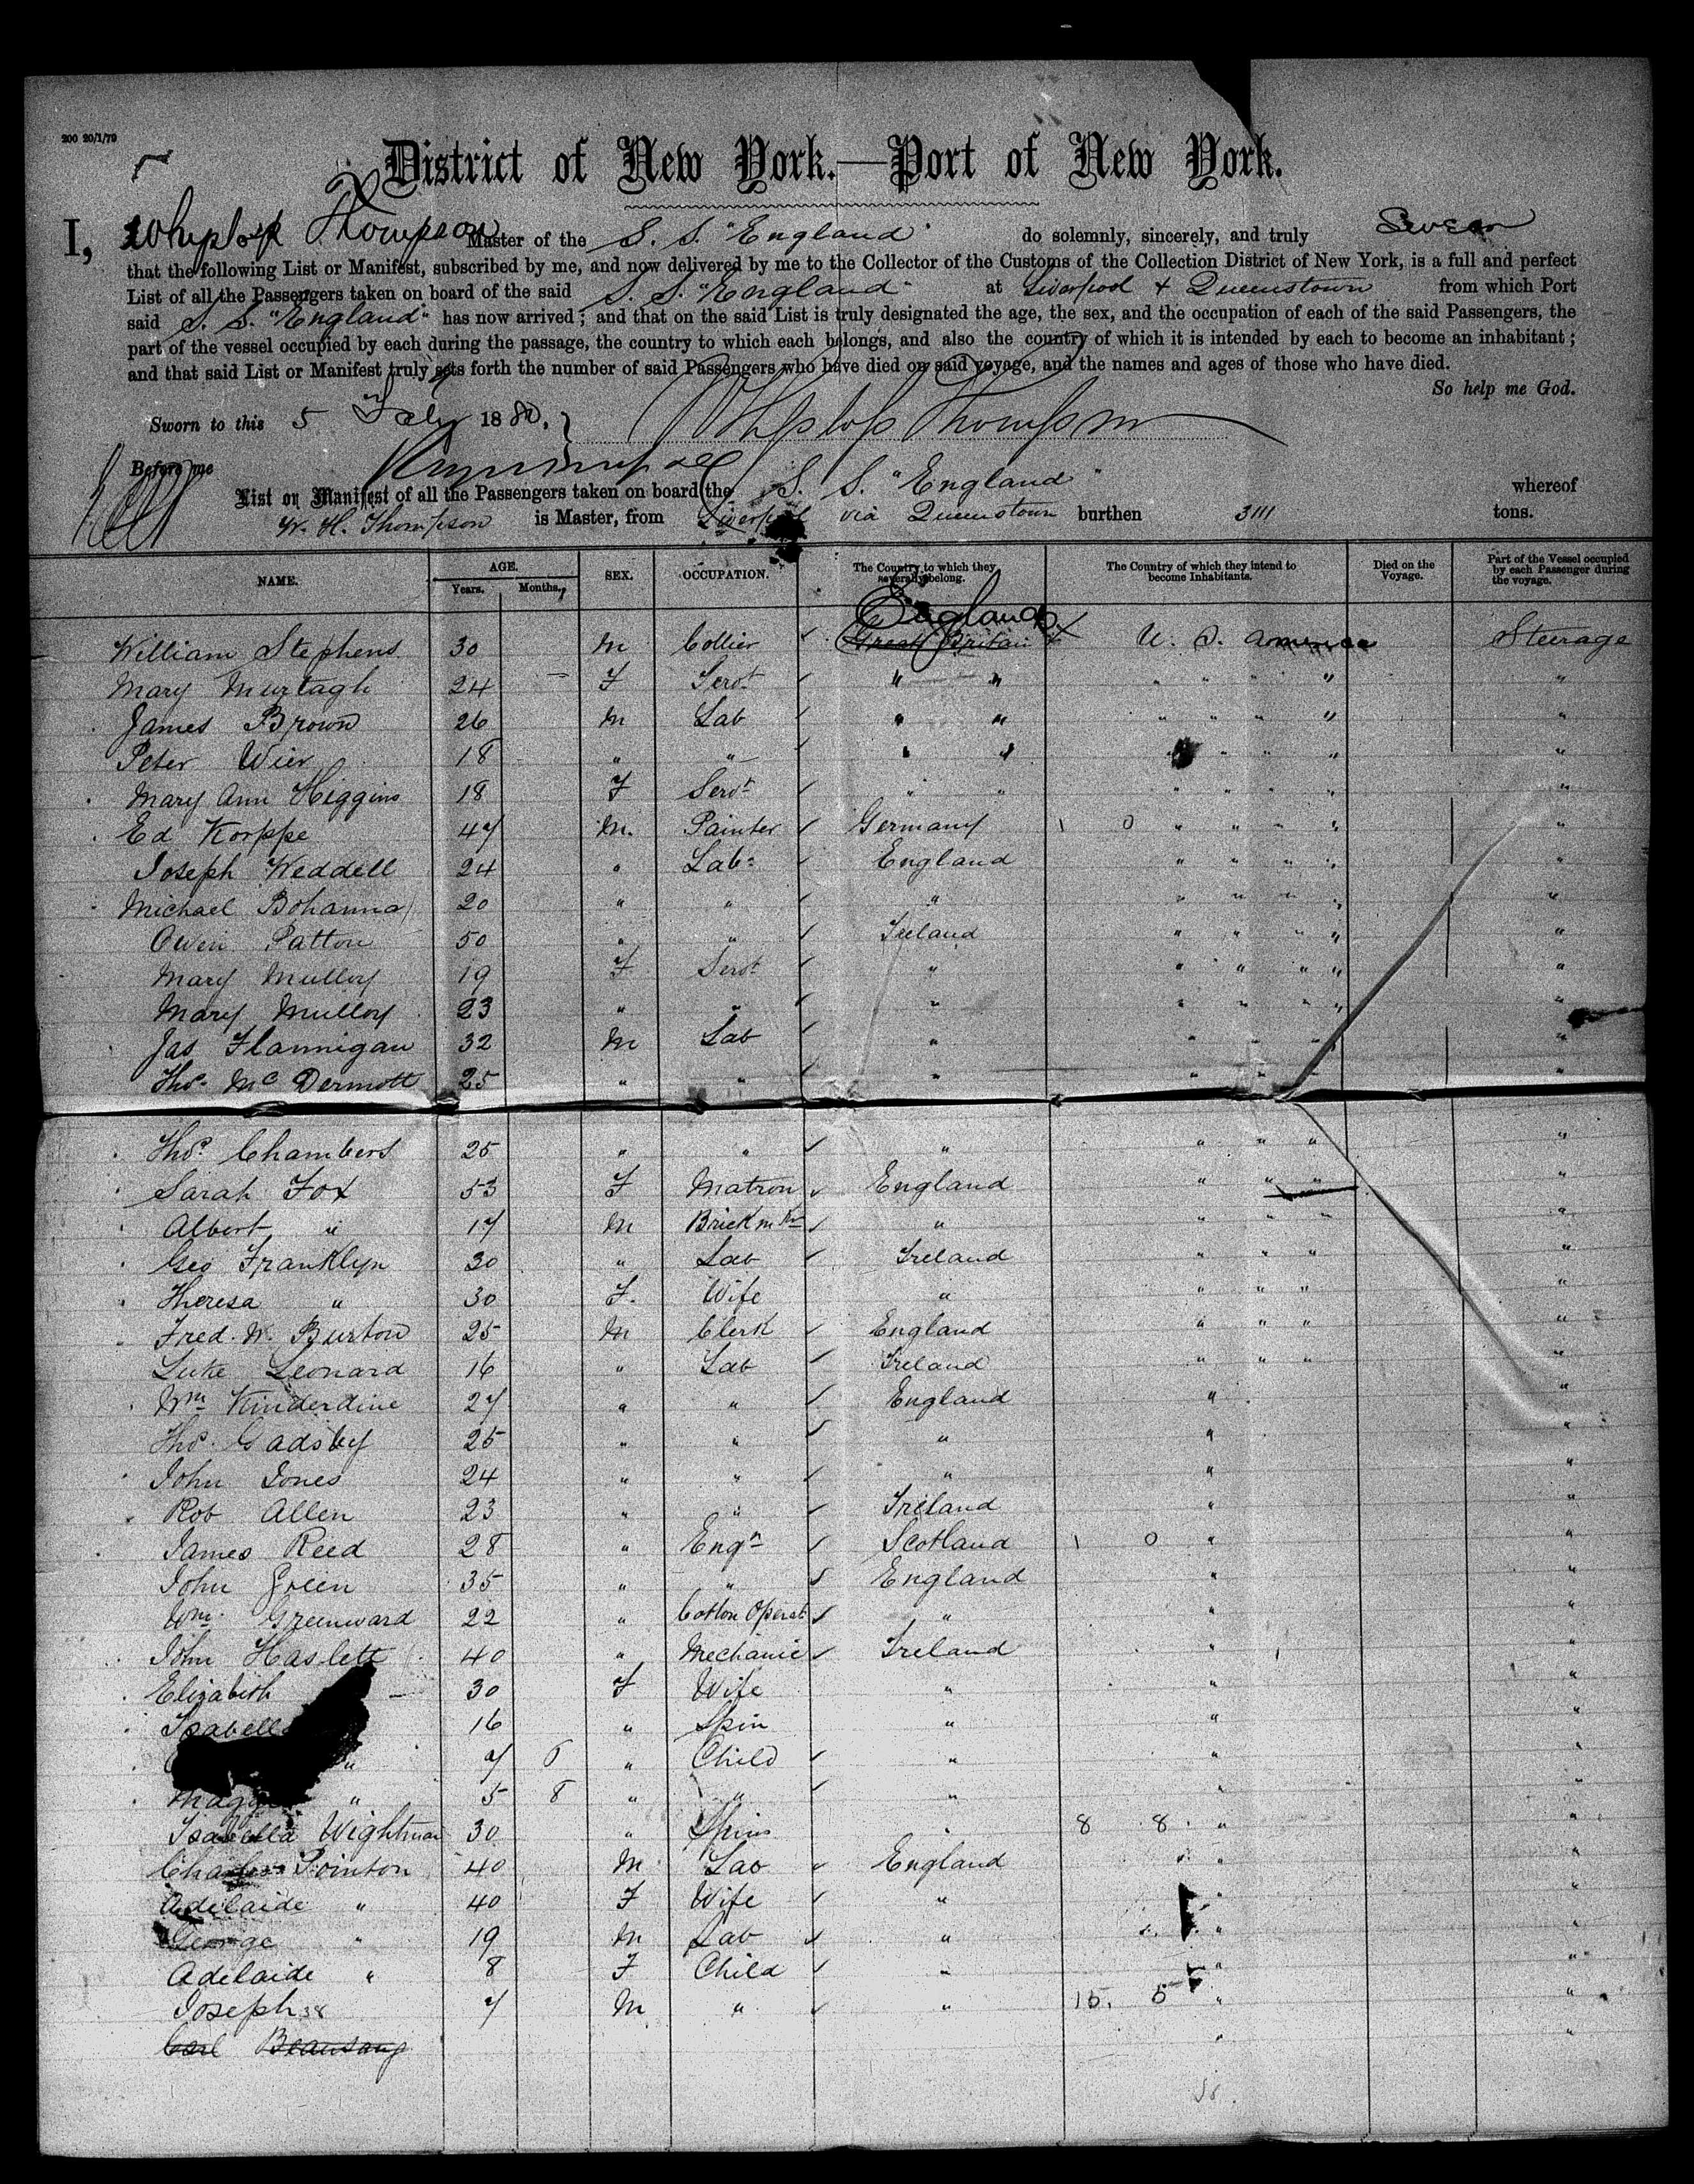 200 20/1/79
District of New York.—Port of New York.
I, Thompson Master of the S. S. "England" do solemnly, sincerely, and truly Swear
that the following List or Manifest, subscribed by me, and now delivered by me to the Collector of the Customs of the Collection District of New York, is a full and perfect
List of all the Passengers taken on board of the said S. S. "England" at Liverpool & Queenstown from which Port
said S. S. "England" has now arrived; and that on the said List is truly designated the age, the sex, and the occupation of each of the said Passengers, the
part of the vessel occupied by each during the passage, the country to which each belongs, and also the country of which it is intended by each to become an inhabitant;
and that said List or Manifest truly sets forth the number of said Passengers who have died on said voyage, and the names and ages of those who have died.
So help me God.
Sworn to this 5 July 1880. Thompson
Before me
List or Manifest of all the Passengers taken on board the S. S. "England" whereof
W. H. Thompson is Master, from Liverpool via Queenstown burthen 3111 tons.
NAME. AGE. Years. Months. SEX. OCCUPATION. The Country to which they severally belong. The Country of which they intend to become Inhabitants. Died on the Voyage. Part of the Vessel occupied by each Passenger during the voyage.
England
William Stephens 30 M Collier Great Britain U. S. America Steerage
Mary Murtagh 24 F Servt " " " " " " "
James Brown 26 M Lab " " " " " " "
Peter Wier 18 " " " " " " " "
Mary Ann Higgins 18 F Servt " " " " " " "
Ed Korppe 47 M. Painter Germany 1 0 " " " " "
Joseph Weddell 24 " Lab England " " " " "
Michael Bohanna 20 " " " " " " " "
Owen Patton 50 " " Ireland " " " " "
Mary Mulloy 19 F Servt " " " " " "
Mary Mulloy 23 " " " " " " " "
Jas Flannigan 32 M Lab " " " " " "
Thos. Mc Dermott 25 " " " " " " "
Thos. Chambers 25 " " " " " " "
Sarah Fox 53 F Matron England " " " "
Albert " 17 M Brick mkr " " " " "
Geo Franklyn 30 " Lab Ireland " " " "
Theresa " 30 F. Wife " " " " "
Fred. W. Burton 25 M Clerk England " " " "
Luke Leonard 16 " Lab Ireland " " " "
Wm Kinderdine 27 " " England " "
Thos. Gadsby 25 " " " " "
John Jones 24 " " " " "
Rob Allen 23 " " Ireland " "
James Reed 28 " Engr Scotland 1 0 " "
John Green 35 " " England " "
Wm. Greenward 22 " Cotton Operat " " "
John Haslett 40 " Mechanic Ireland " "
Elizabeth 30 F Wife " " "
Isabella 16 " Spin " " "
" 7 6 " Child " " "
Maggie " 5 8 " " " " "
Isabella Wightman 30 " Spin " 8 8 " "
Charles Pointon 40 M Lab England " "
Adelaide " 40 F Wife " " "
George " 19 M Lab " " "
Adelaide " 8 F Child " " "
Joseph 38 7 M " " 15. 5 " "
Carl Beausang " "